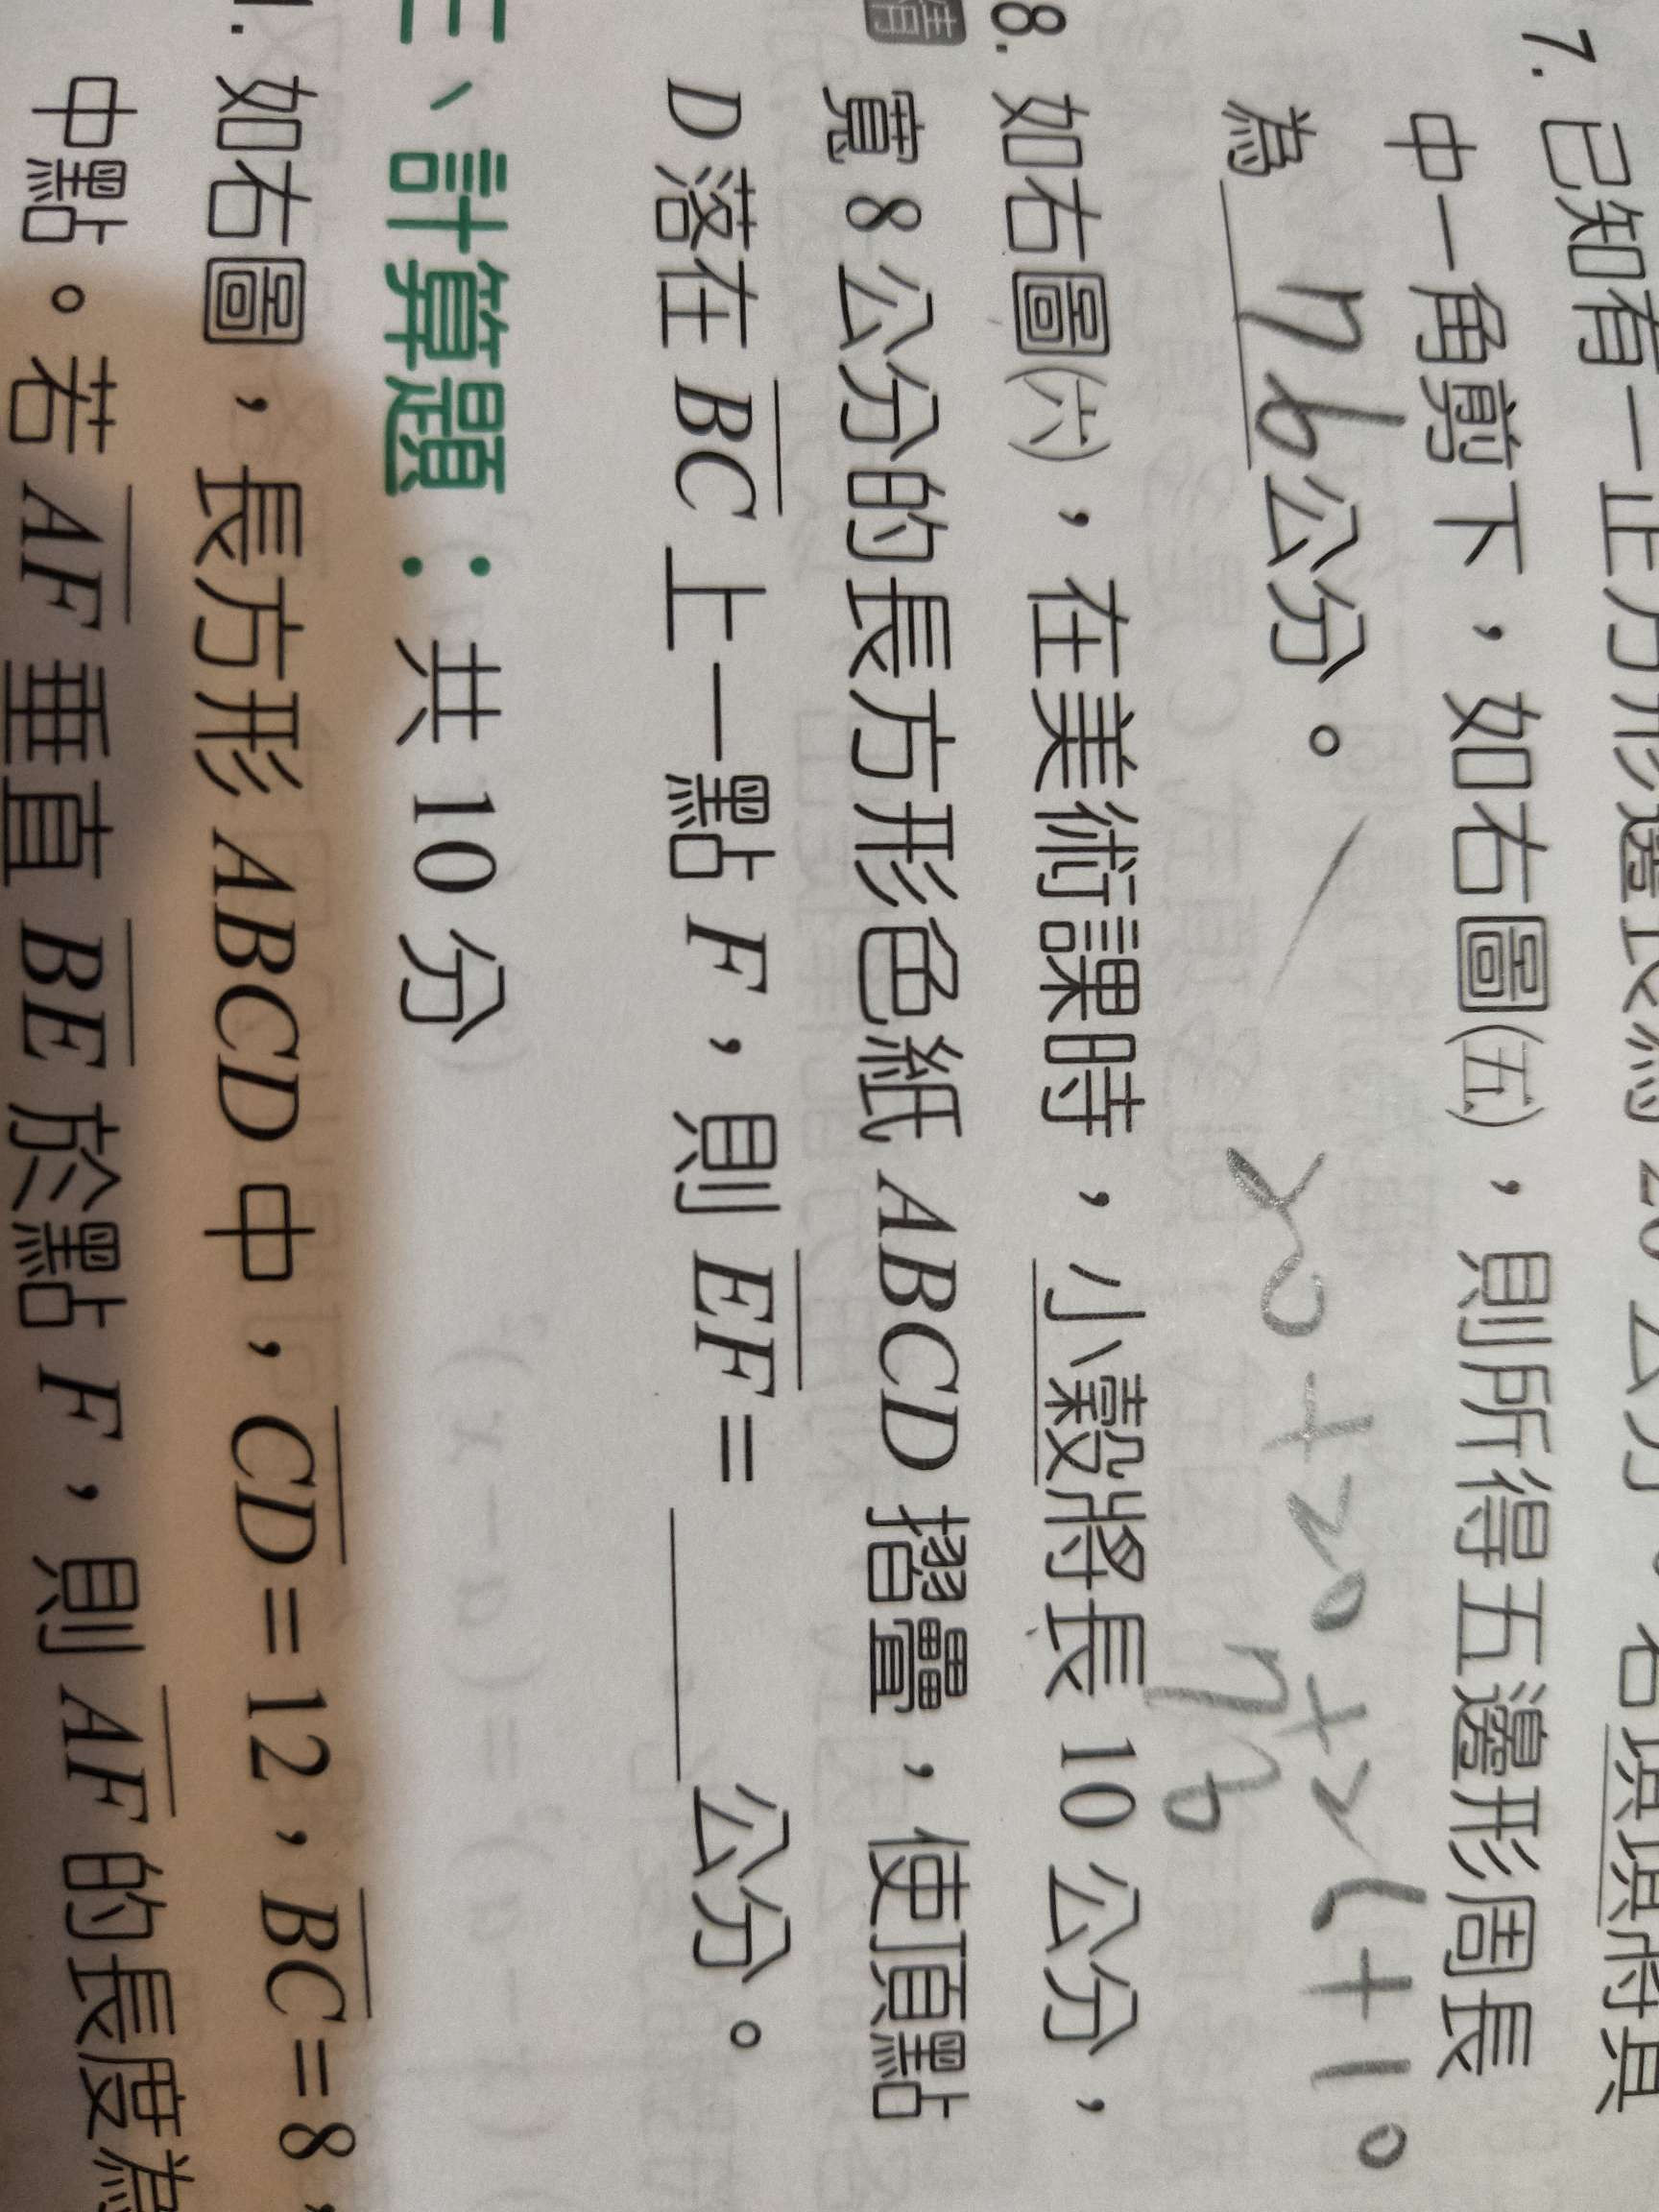 7. 已知有一正方形邊長為 20 公分,若琪琪將其
中一角剪下,如右圖(五),則所得五邊形周長
為 76 公分。
20+20+24+10
76
8. 如右圖(六),在美術課時,小穀將長 10 公分,
寬 8 公分的長方形色紙 ABCD 摺疊,使頂點
D 落在 BC 上一點 F,則 EF = ______ 公分。
三、計算題:共 10 分
1. 如右圖,長方形 ABCD 中,CD = 12,BC = 8,
中點。若 AF 垂直 BE 於點 F,則 AF 的長度為